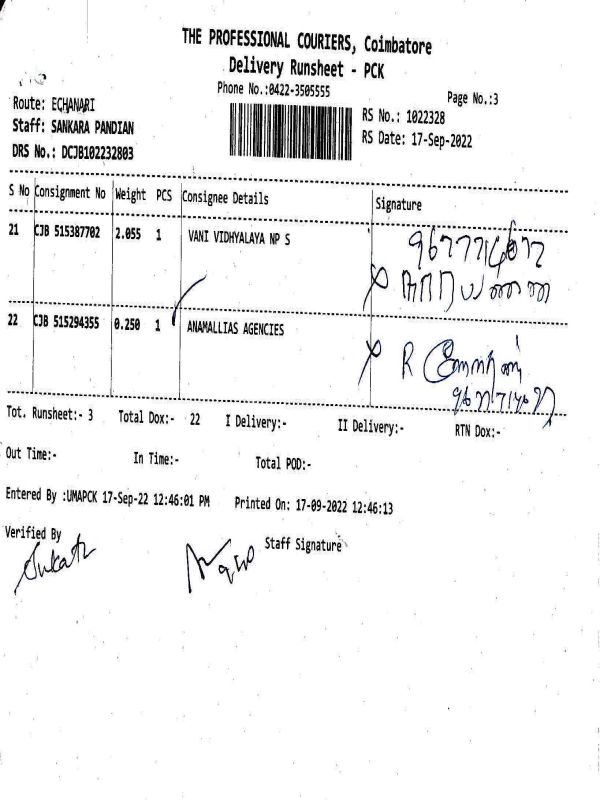 THE PROFESSIONAL COURIERS, Coimbatore
Delivery Runsheet - PCK
Phone No.:0422-3505555
Page No.:3
Route: ECHANARI
RS No.: 1022328
Staff: SANKARA PANDIAN
RS Date: 17-Sep-2022
DRS No.: DCJB102232803
S No Consignment No Weight PCS Consignee Details Signature
21 CJB 515387702 2.055 1 VANI VIDHYALAYA NP S
நாராயணன்
22 CJB 515294355 0.250 1 ANAMALLIAS AGENCIES
R
Tot. Runsheet:- 3 Total Dox:- 22 I Delivery:- II Delivery:- RTN Dox:-
Out Time:- In Time:- Total POD:-
Entered By :UMAPCK 17-Sep-22 12:46:01 PM Printed On: 17-09-2022 12:46:13
Verified By Staff Signature